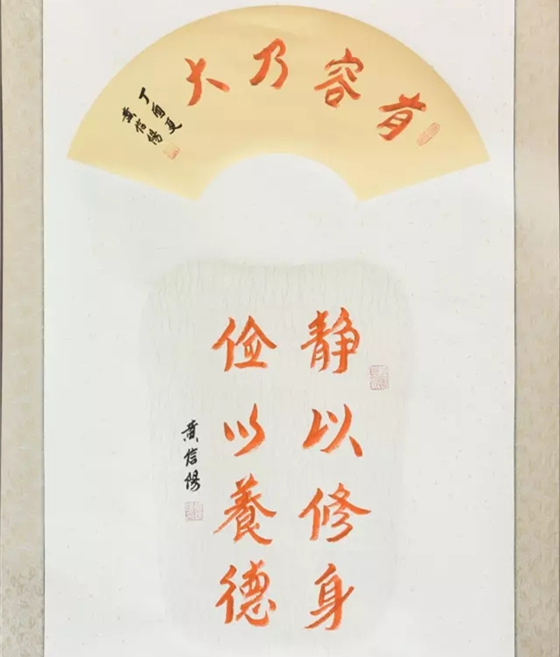 有容乃大
丁酉夏
黄信阳
静以修身
俭以養德
黄信阳